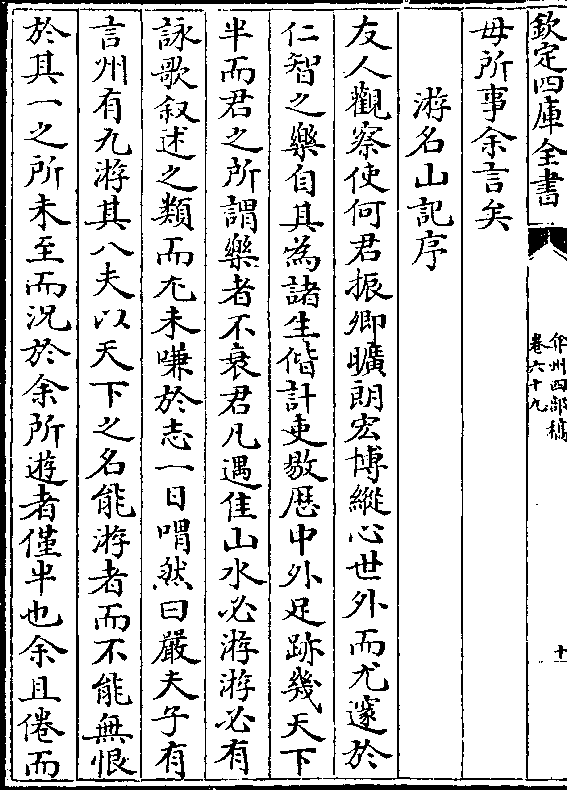 欽定四庫全書
弇州四部稿
卷六十九
十一
毋所事余言矣
游名山記序
友人觀察使何君振卿曠朗宏博縱心世外而尤邃於
仁智之樂自其為諸生偕計吏敭歴中外足跡幾天下
半而君之所謂樂者不衰君凡遇佳山水必游游必有
詠歌叙述之類而尤未嗛於志一日喟然曰嚴夫子有
言州有九游其八夫以天下之名能游者而不能無恨
於其一之所未至而況於余所遊者僅半也余且倦而